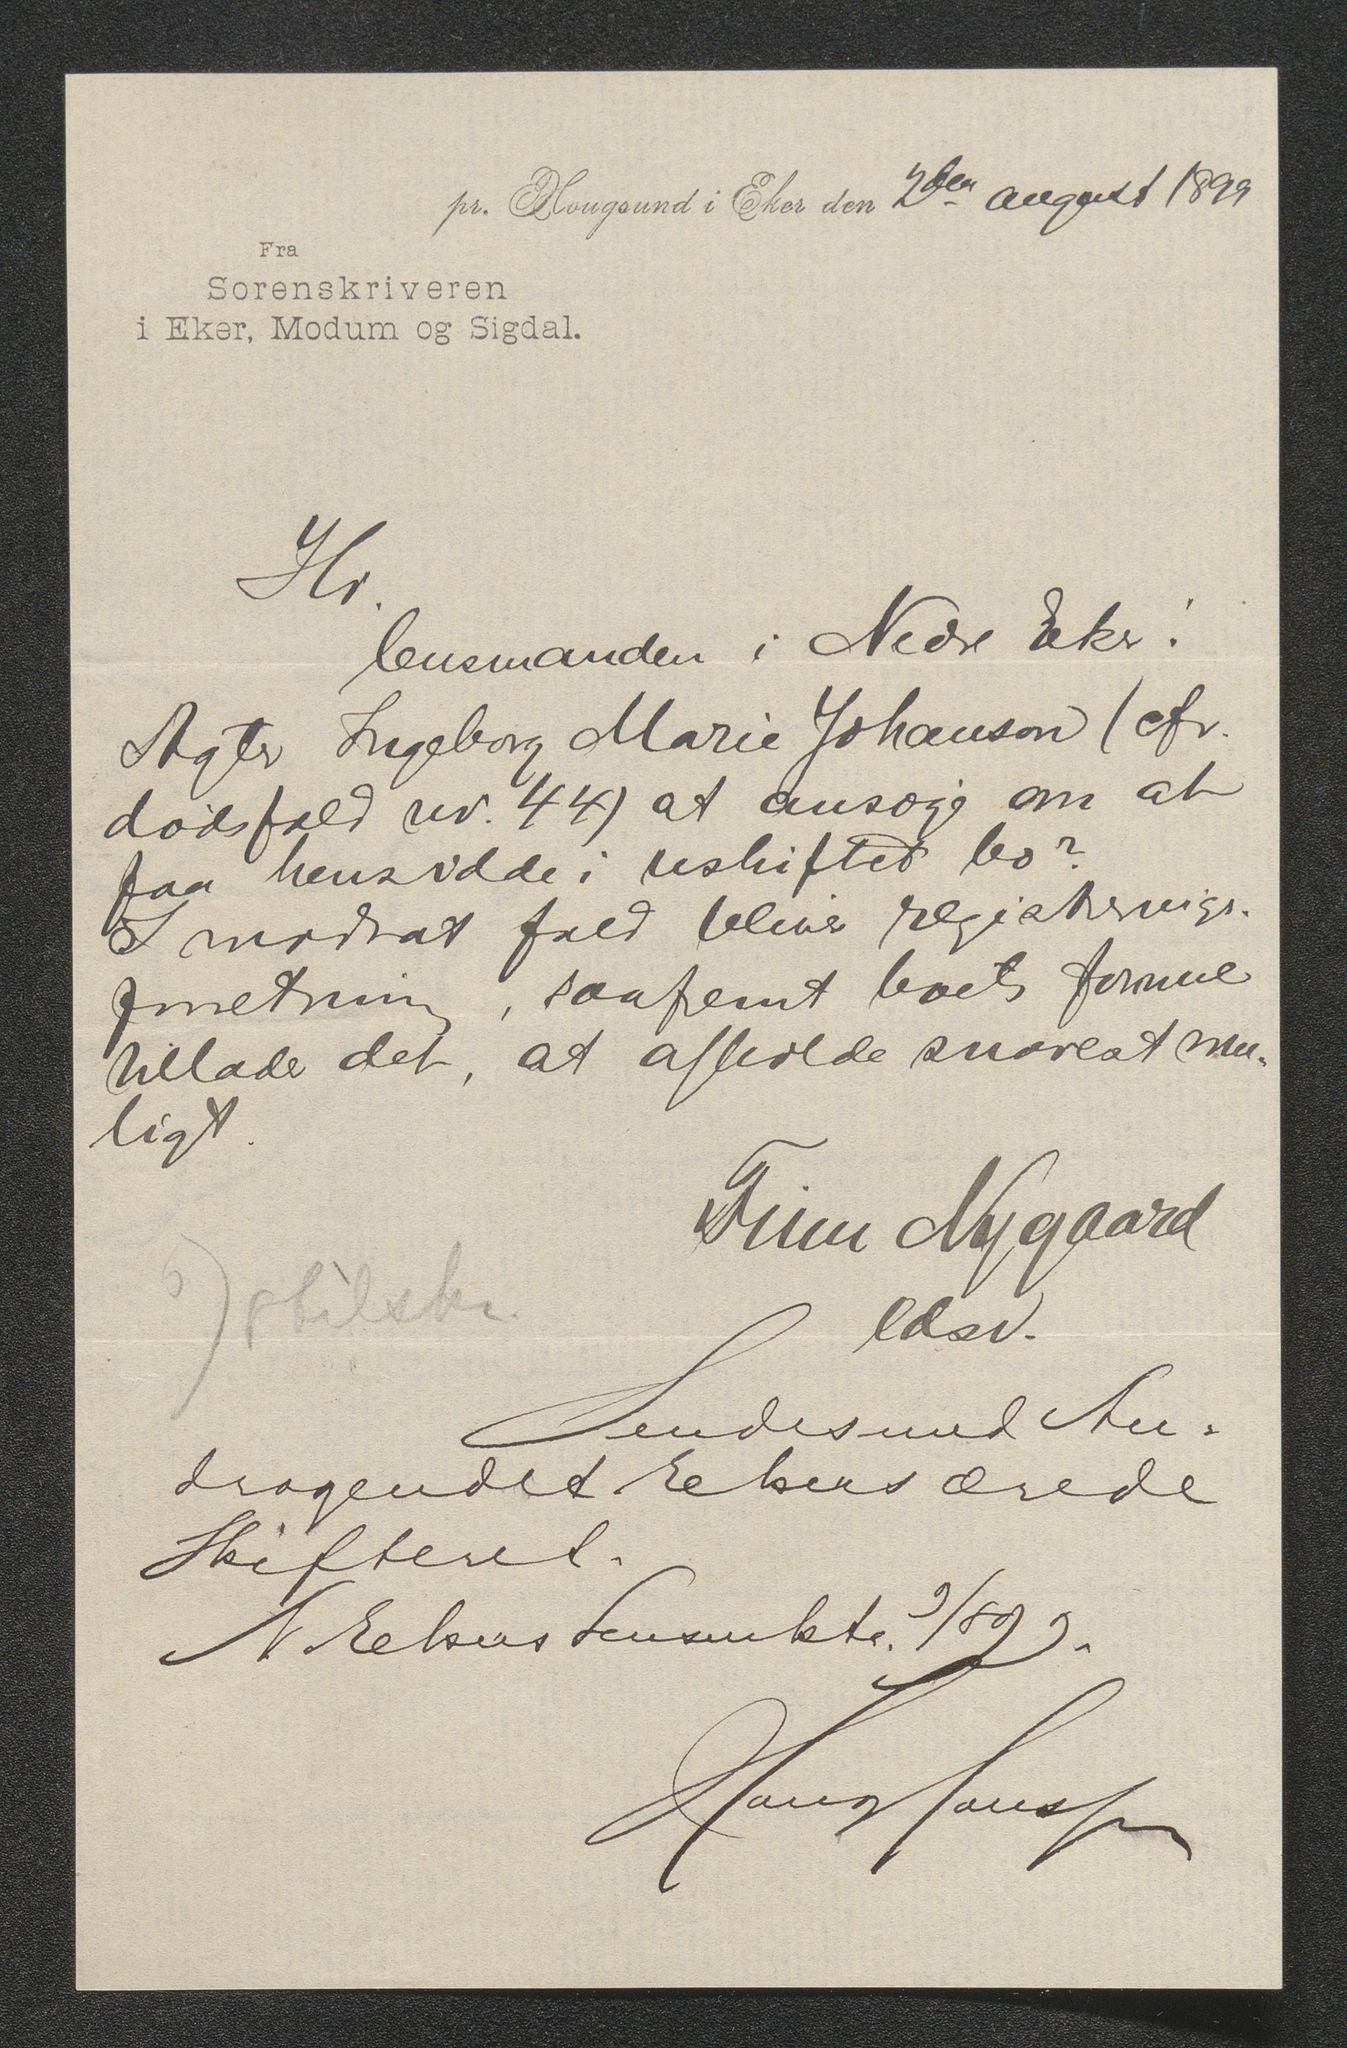 pr. Hougsund i Eker den 2den august 1899
Fra
Sorenskriveren
i Eker, Modum og Sigdal.
Hr.
lensmanden i Nedre Eker!
Agter Ingeborg Marie Johanson (cfr.
dødsfald nr. 44) at ansøge om at
faa hensidde i uskiftet bo?
I modsat fald bliver registrerings-
forretning, saafremt boets formue
tillader det, at afholde snarest mu-
ligt.
Finn Nygaard
edsv.
stilskr.
Sendes med An-
dragendet Ekers ærede
Skifteret.
N. Ekers Lensmktr. 9/8 99.
Hans Hansen